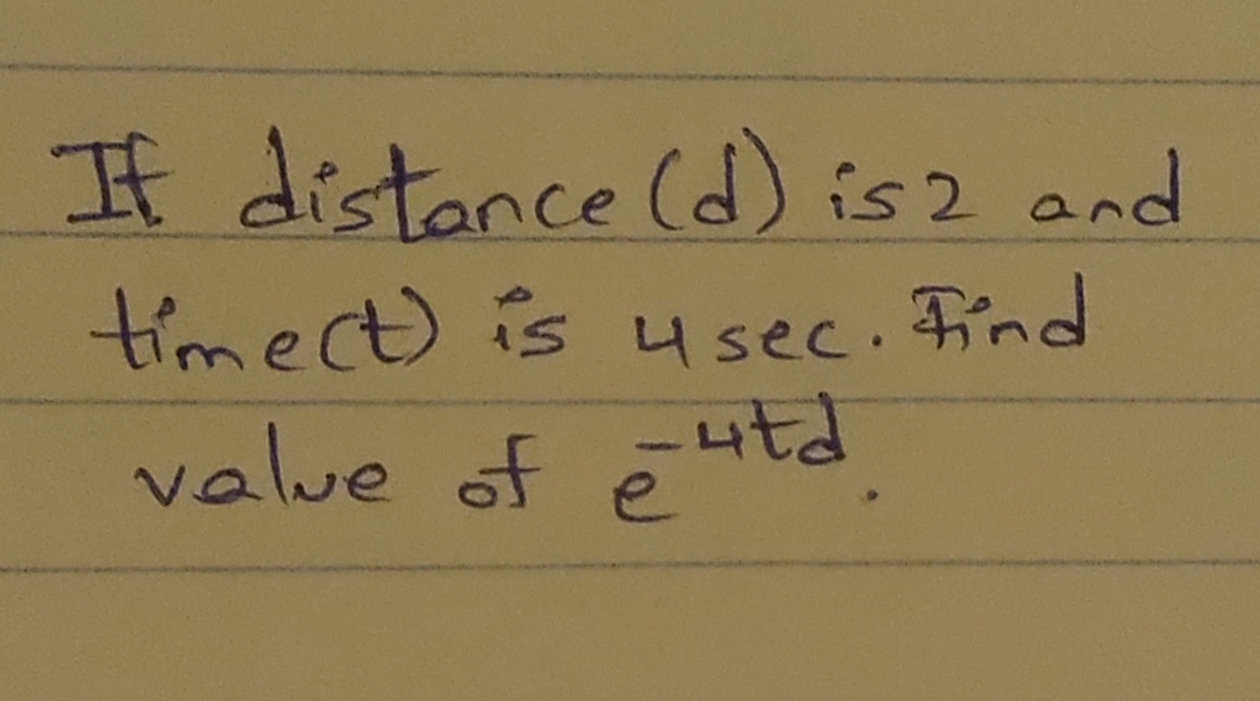 If distance (d) is 2 and
time(t) is 4 sec. Find
value of e^{-4td}.